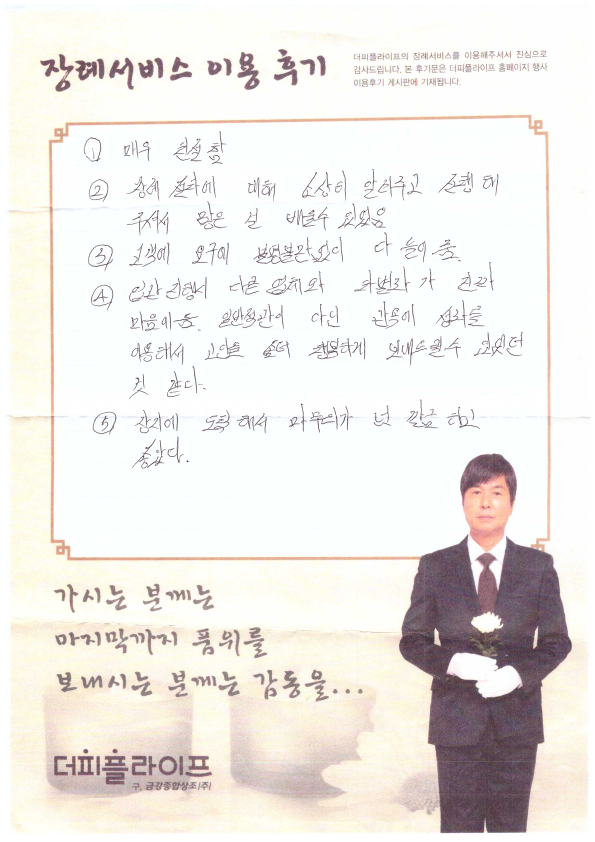 장례서비스 이용 후기
더피플라이프의 장례서비스를 이용해주셔서 진심으로
감사드립니다. 본 후기문은 더피플라이프 홈페이지 행사
이용후기 게시판에 기재됩니다.
① 매우 친절함
② 장례 절차에 대해 소상히 알려주고 진행해
주셔서 많은 걸 배울수 있었음
③ 고객에 요구에 불평불만없이 다 들어줌.
④ 입관 진행시 다른 업체와 차별화가 진짜
마음에듬. 일반목관이 아닌 관속에 한지를
이용해서 고인을 좀더 행복하게 보내드릴수 있었던
것 같다.
⑤ 장지에 도착해서 마무리가 넘 깔끔하고
좋았다.
가시는 분께는
마지막까지 품위를
보내시는 분께는 감동을...
더피플라이프
구. 금강종합상조(주)